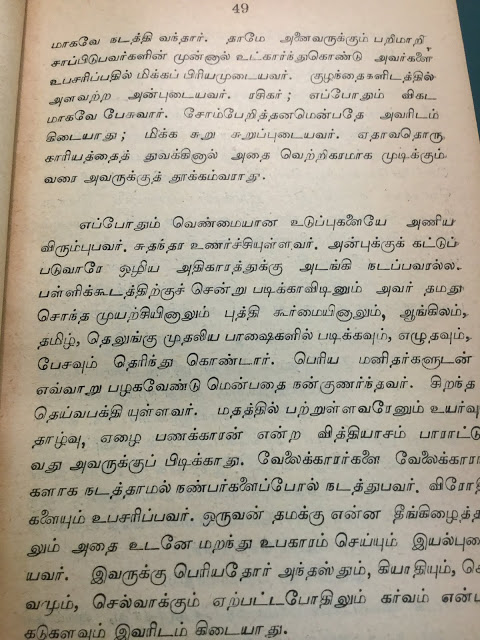 49
மாகவே நடத்தி வந்தார். தாமே அனைவருக்கும் பறிமாறி
சாப்பிடுபவர்களின் முன்னால் உட்கார்ந்துகொண்டு அவர்களை
உபசரிப்பதில் மிக்கப் பிரியமுடையவர். குழந்தைகளிடத்தில்
அளவற்ற அன்புடையவர். ரசிகர்; எப்போதும் விகட
மாகவே பேசுவார். சோம்பேறித்தனமென்பதே அவரிடம்
கிடையாது; மிக்க சுறு சுறுப்புடையவர். ஏதாவதொரு
காரியத்தைத் துவக்கினால் அதை வெற்றிகரமாக முடிக்கும்
வரை அவருக்குத் தூக்கம்வராது.
எப்போதும் வெண்மையான உடுப்புகளையே அணிய
விரும்புபவர். சுதந்தர உணர்ச்சியுள்ளவர். அன்புக்குக் கட்டுப்
படுவாரே ஒழிய அதிகாரத்துக்கு அடங்கி நடப்பவரால்ல.
பள்ளிக்கூடத்திற்குச் சென்று படிக்காவிடினும் அவர் தமது
சொந்த முயற்சியினாலும் புத்தி கூர்மையினாலும், ஆங்கிலம்,
தமிழ், தெலுங்கு முதலிய பாஷைகளில் படிக்கவும், எழுதவும்,
பேசவும் தெரிந்து கொண்டார். பெரிய மனிதர்களுடன்
எவ்வாறு பழகவேண்டு மென்பதை நன்குணர்ந்தவர். சிறந்த
தெய்வபக்தி யுள்ளவர். மதத்தில் பற்றுள்ளவரேனும் உயர்வு
தாழ்வு, ஏழை பணக்காரன் என்ற வித்தியாசம் பாராட்டு
வது அவருக்குப் பிடிக்காது. வேலைக்காரர்களை வேலைக்கார
களாக நடத்தாமல் நண்பர்களைப்போல் நடத்துபவர். விரோதி
களையும் உபசரிப்பவர். ஒருவன் தமக்கு என்ன தீங்கிழைத்த
லும் அதை உடனே மறந்து உபகாரம் செய்யும் இயல்புடை
யவர். இவருக்கு பெரியதோர் அந்தஸ்தும், கியாதியும், செ
வமும், செல்வாக்கும் ஏற்பட்டபோதிலும் கர்வம் என்ப
கடுகளவும் இவரிடம் கிடையாது.